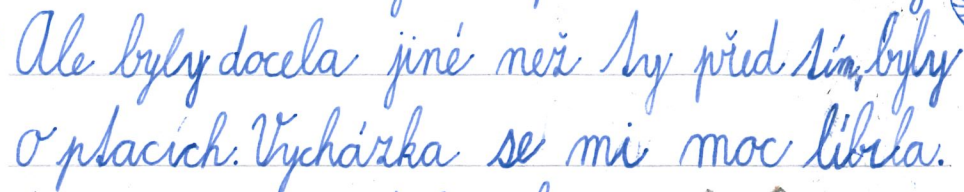 Ale byly docela jiné než ty před tím, byly
o ptacích. Vycházka se mi moc líbila.